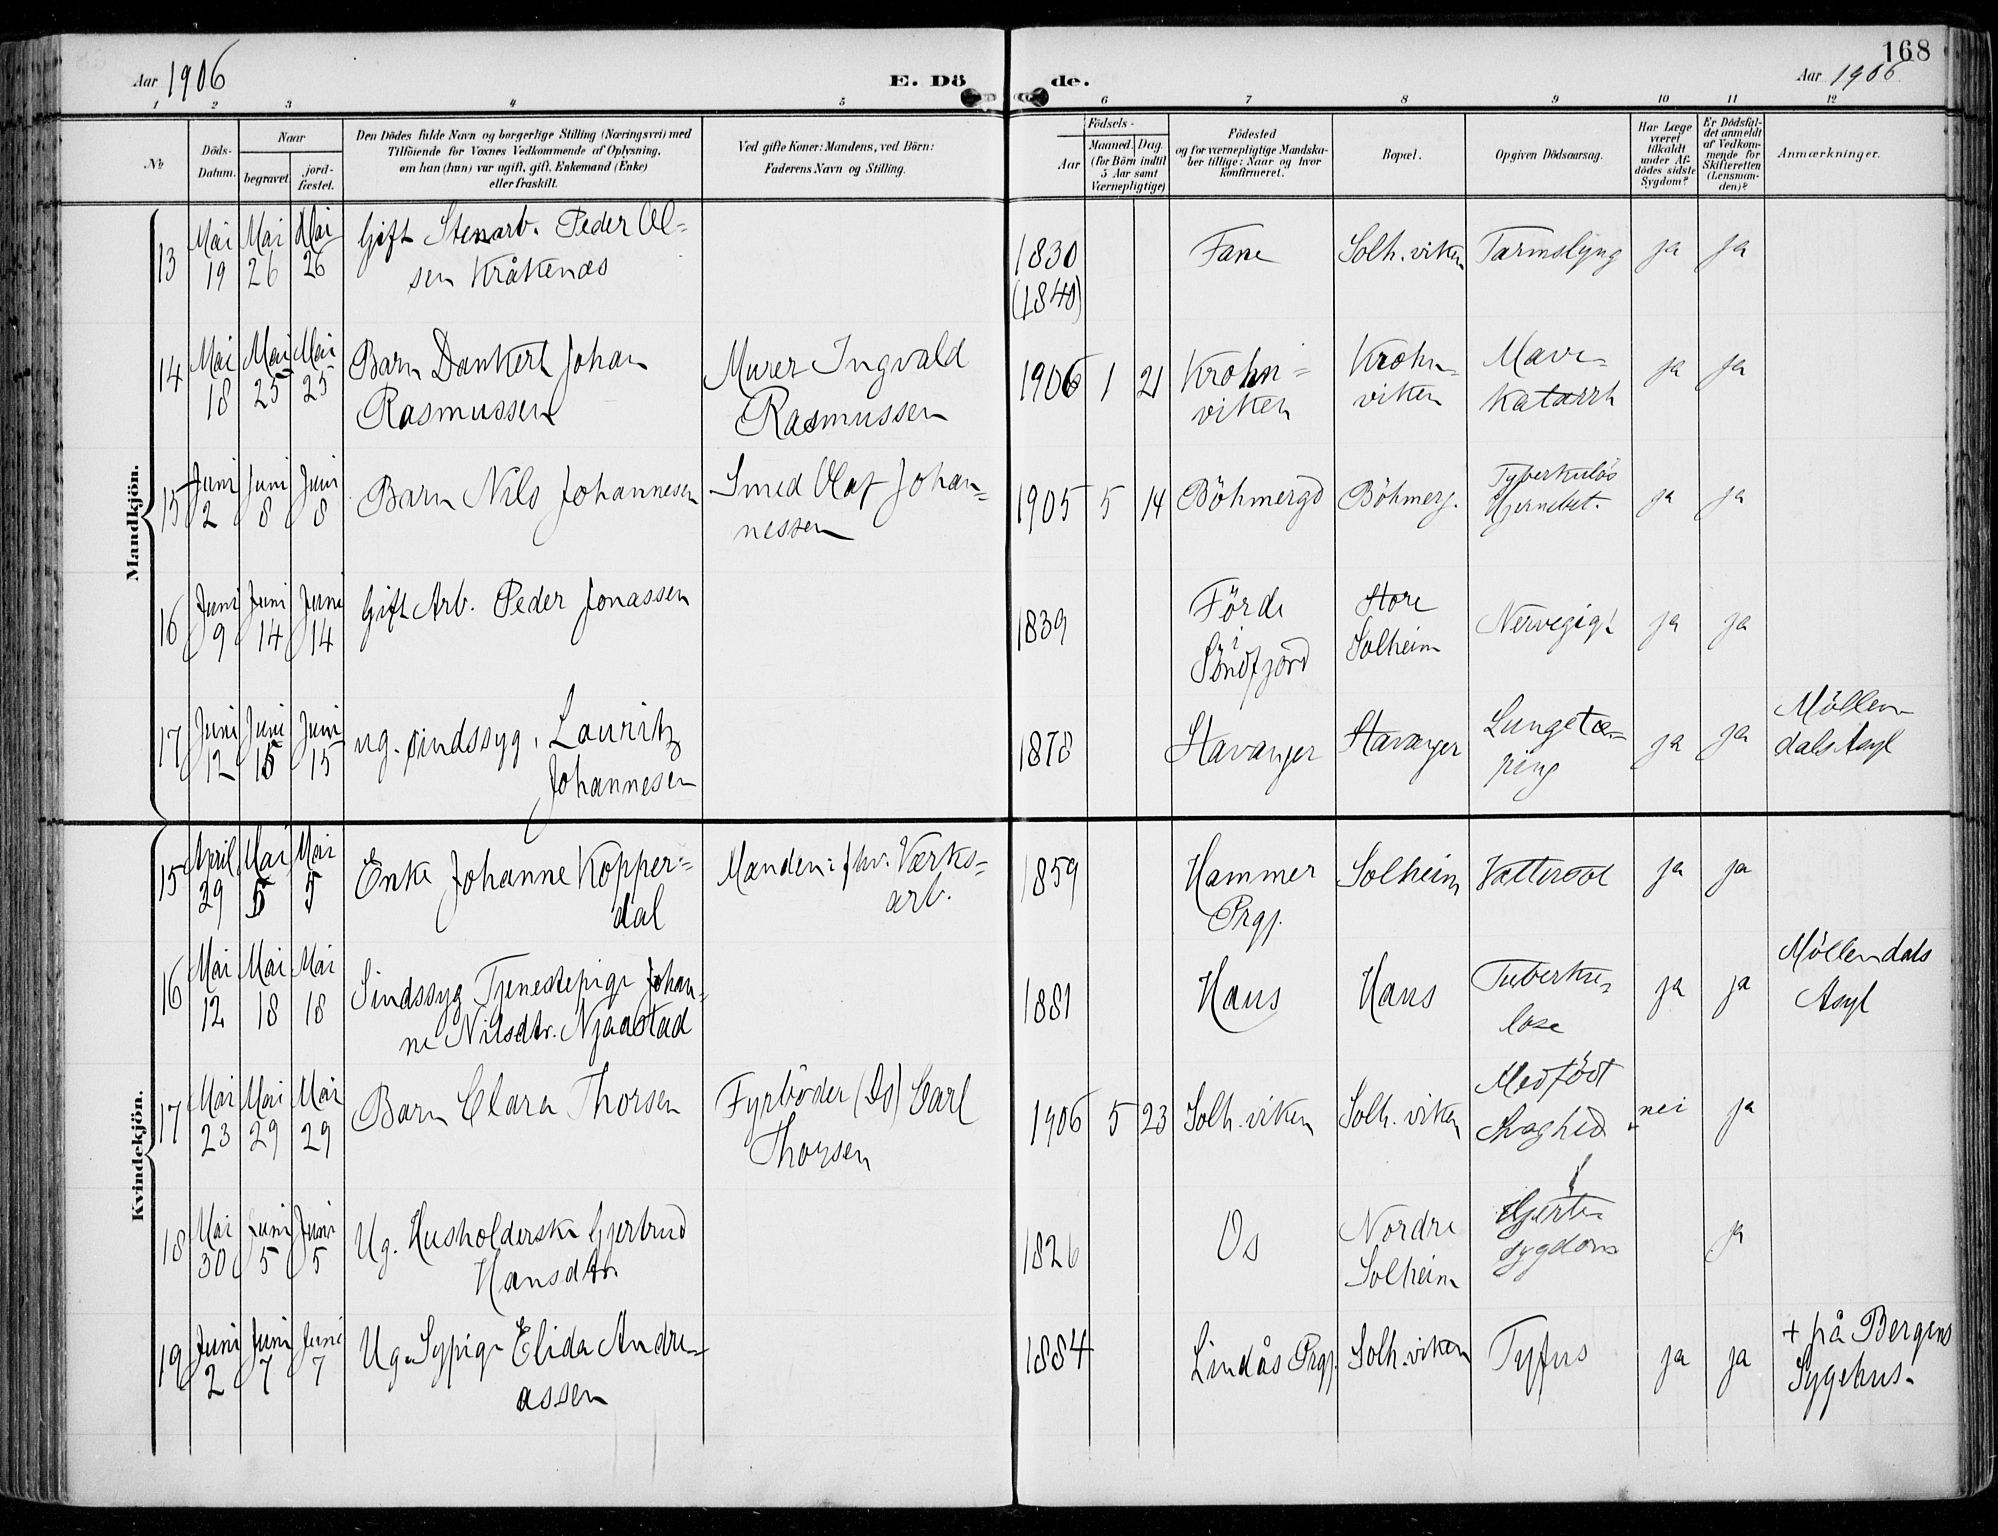 168
Aar 1906
E. Döde.
Aar 1906
1 2 3 4 5 6 7 8 9 10 11 12
No
Döds-
Datum.
Naar
begravet.
jord-
fæstet.
Den Dödes fulde Navn og borgerlige Stilling (Næringsvei) med
Tilföiende for Voxnes Vedkommende af Oplysning,
om han (hun) var ugift, gift, Enkemand (Enke)
eller fraskilt.
Ved gifte Koner: Mandens, ved Börn:
Faderens Navn og Stilling.
Födsels-
Aar
Maaned. Dag.
(for Börn indtil
5 Aar samt
Værnepligtige)
Födested
og for værnepligtige Mandska-
ber tillige: Naar og hvor
konfirmeret.
Bopæl.
Opgiven Dödsaarsag.
Har Læge
været
tilkaldt
under Af-
dödes sidste
Sygdom?
Er Dödsfal-
det anmeldt
af Vedkom-
mende for
Skifteretten
(Lensman-
den)?
Anmærkninger.
Mandkjön.
13 Mai 19 Mai 26 Mai 26 Gift Stenarb. Peder Ol-
sen Kråkenæs
1830
(1840)
Fane Solh.viken Tarmslyng ja ja
14 Mai 18 Mai 25 Mai 25 Barn Dankert Johan
Rasmussen
Murer Ingvald
Rasmussen
1906 1 21 Krohn-
viken
Krohn-
viken
Mave-
katarrh
ja ja
15 Juni 2 Juni 8 Juni 8 Barn Nils Johannesen
Smed Olaf Johan-
nessen
1905 5 14 Böhmergd Böhmerg. Tyberkulös
Hjernebet.
ja ja
16 Juni 9 Juni 14 Juni 14 Gift Arb. Peder Jonassen
1839 Förde
i
Söndfjord
Store
Solheim
Nervegigt ja ja
17 Juni 12 Juni 15 Juni 15 ug. sindssyg, Lauritz
Johannesen
1878 Stavanger Stavanger Lungetæ-
ring
ja ja Möllen-
dals Asyl
Kvindekjön.
15 April 29 Mai 5 Mai 5 Enke Johanne Kopper-
dal
Manden: fhv. Værks-
arb.
1859 Hammer
Prgj.
Solheim Vattersot ja ja
16 Mai 12 Mai 18 Mai 18 Sindssyg Tjenestepige Johan-
ne Nilsdtr. Njaastad
1881 Haus Haus Tuberku-
lose
ja ja Möllendals
Asyl
17 Mai 23 Mai 29 Mai 29 Barn Clara Thorsen
Fyrböder (Ds) Carl
Thorsen
1906 5 23 Solh.viken Solh.viken Medfödt
Svaghed
nei ja
18 Mai 30 Juni 5 Juni 5 Ug. Husholderske Gjertrud
Hansdtr.
1826 Os Nordre
Solheim
Hjerte-
sygdom
ja
19 Juni 2 Juni 7 Juni 7 Ug. Sypige Elida Andre-
assen
1884 Lindås Prgj. Solh.viken Tyfus ja ja + på Bergens
Sygehus.